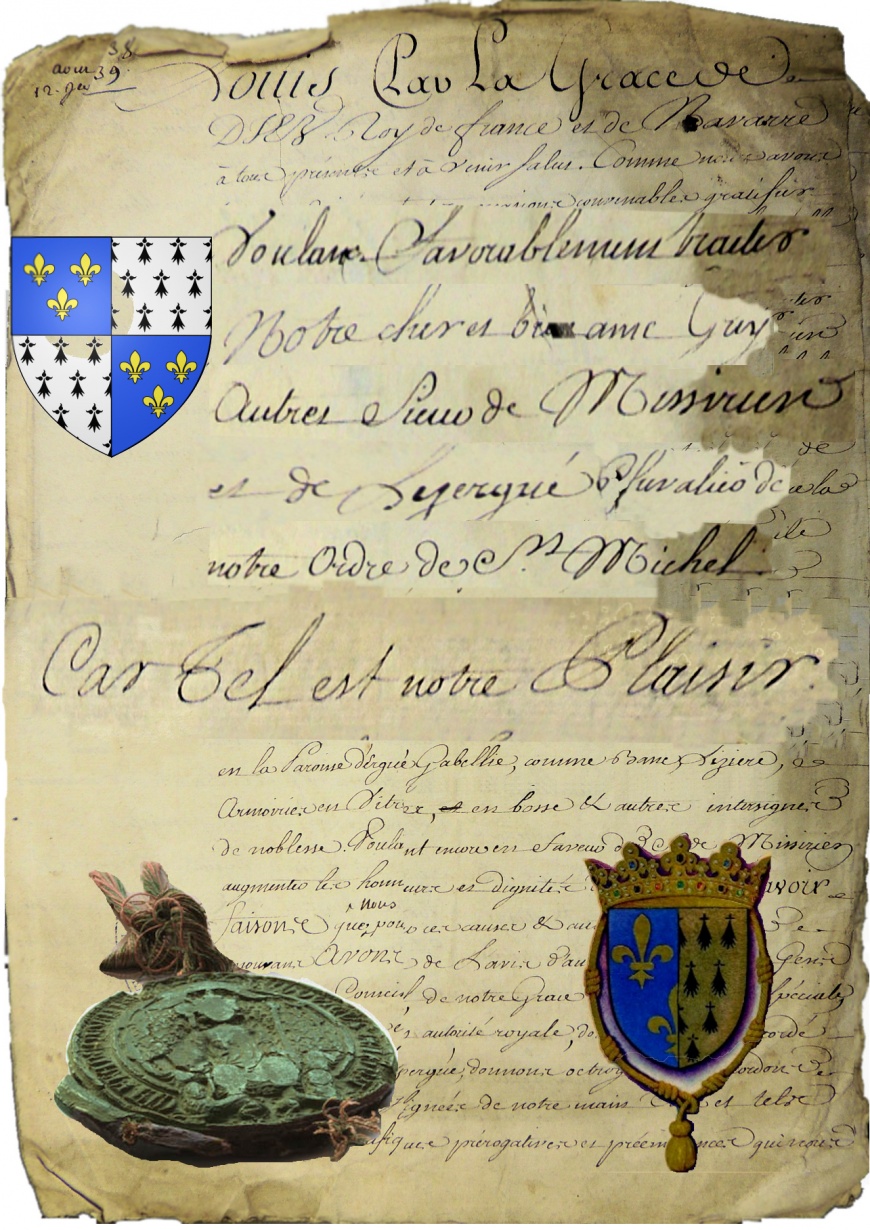 38
aoust 39.
Louis Par La Grace de
DIEV Roy de france et de Navarre
à tous présens et à venir salut. Comme nous avons
convenables gratifier
Voulant favorablement traiter
Notre cher et bien amé Guy
Autret Sieur de Missirien
et de Lezergué Chevalier de
notre Ordre de St. Michel
Car Tel est notre Plaisir.
en la Paroisse d'ergué Gabellic, comme Banc, Liziere,
Armoiries en Vitre, et en bosse & autres intersignes
de noblesse. Voulant encore en faveur de Missirien
augmenter les honneurs et dignités
nous
faisons que pour ces causes & au
Avons de L'avis d'au Gens
Conseil de notre Grace spéciale
autorité royale, de
donnons octroy
signées de notre main et tels
prérogatives et préeminences qui nous